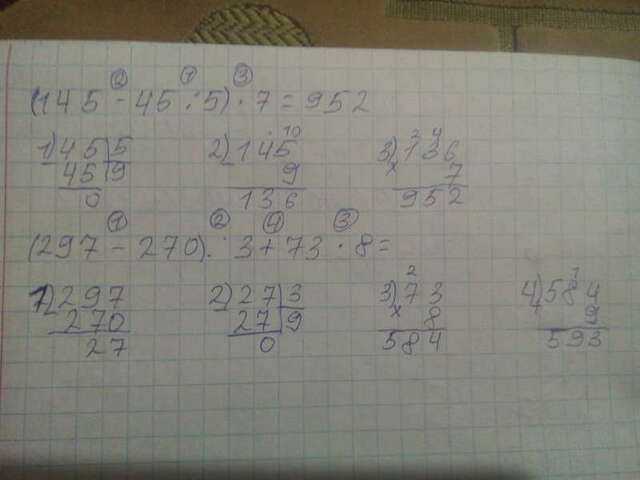 ② ① ③
(145 - 45 : 5) · 7 = 952
1) 45 5 2) 145 10 3) 136 2 4
45 9 9 × 7
0 136 952
① ② ④ ③
(297 - 270) : 3 + 73 · 8 =
1) 297 2) 27 3 3) 73 2 4) 584 1
270 27 9 × 8 + 9
27 0 584 593